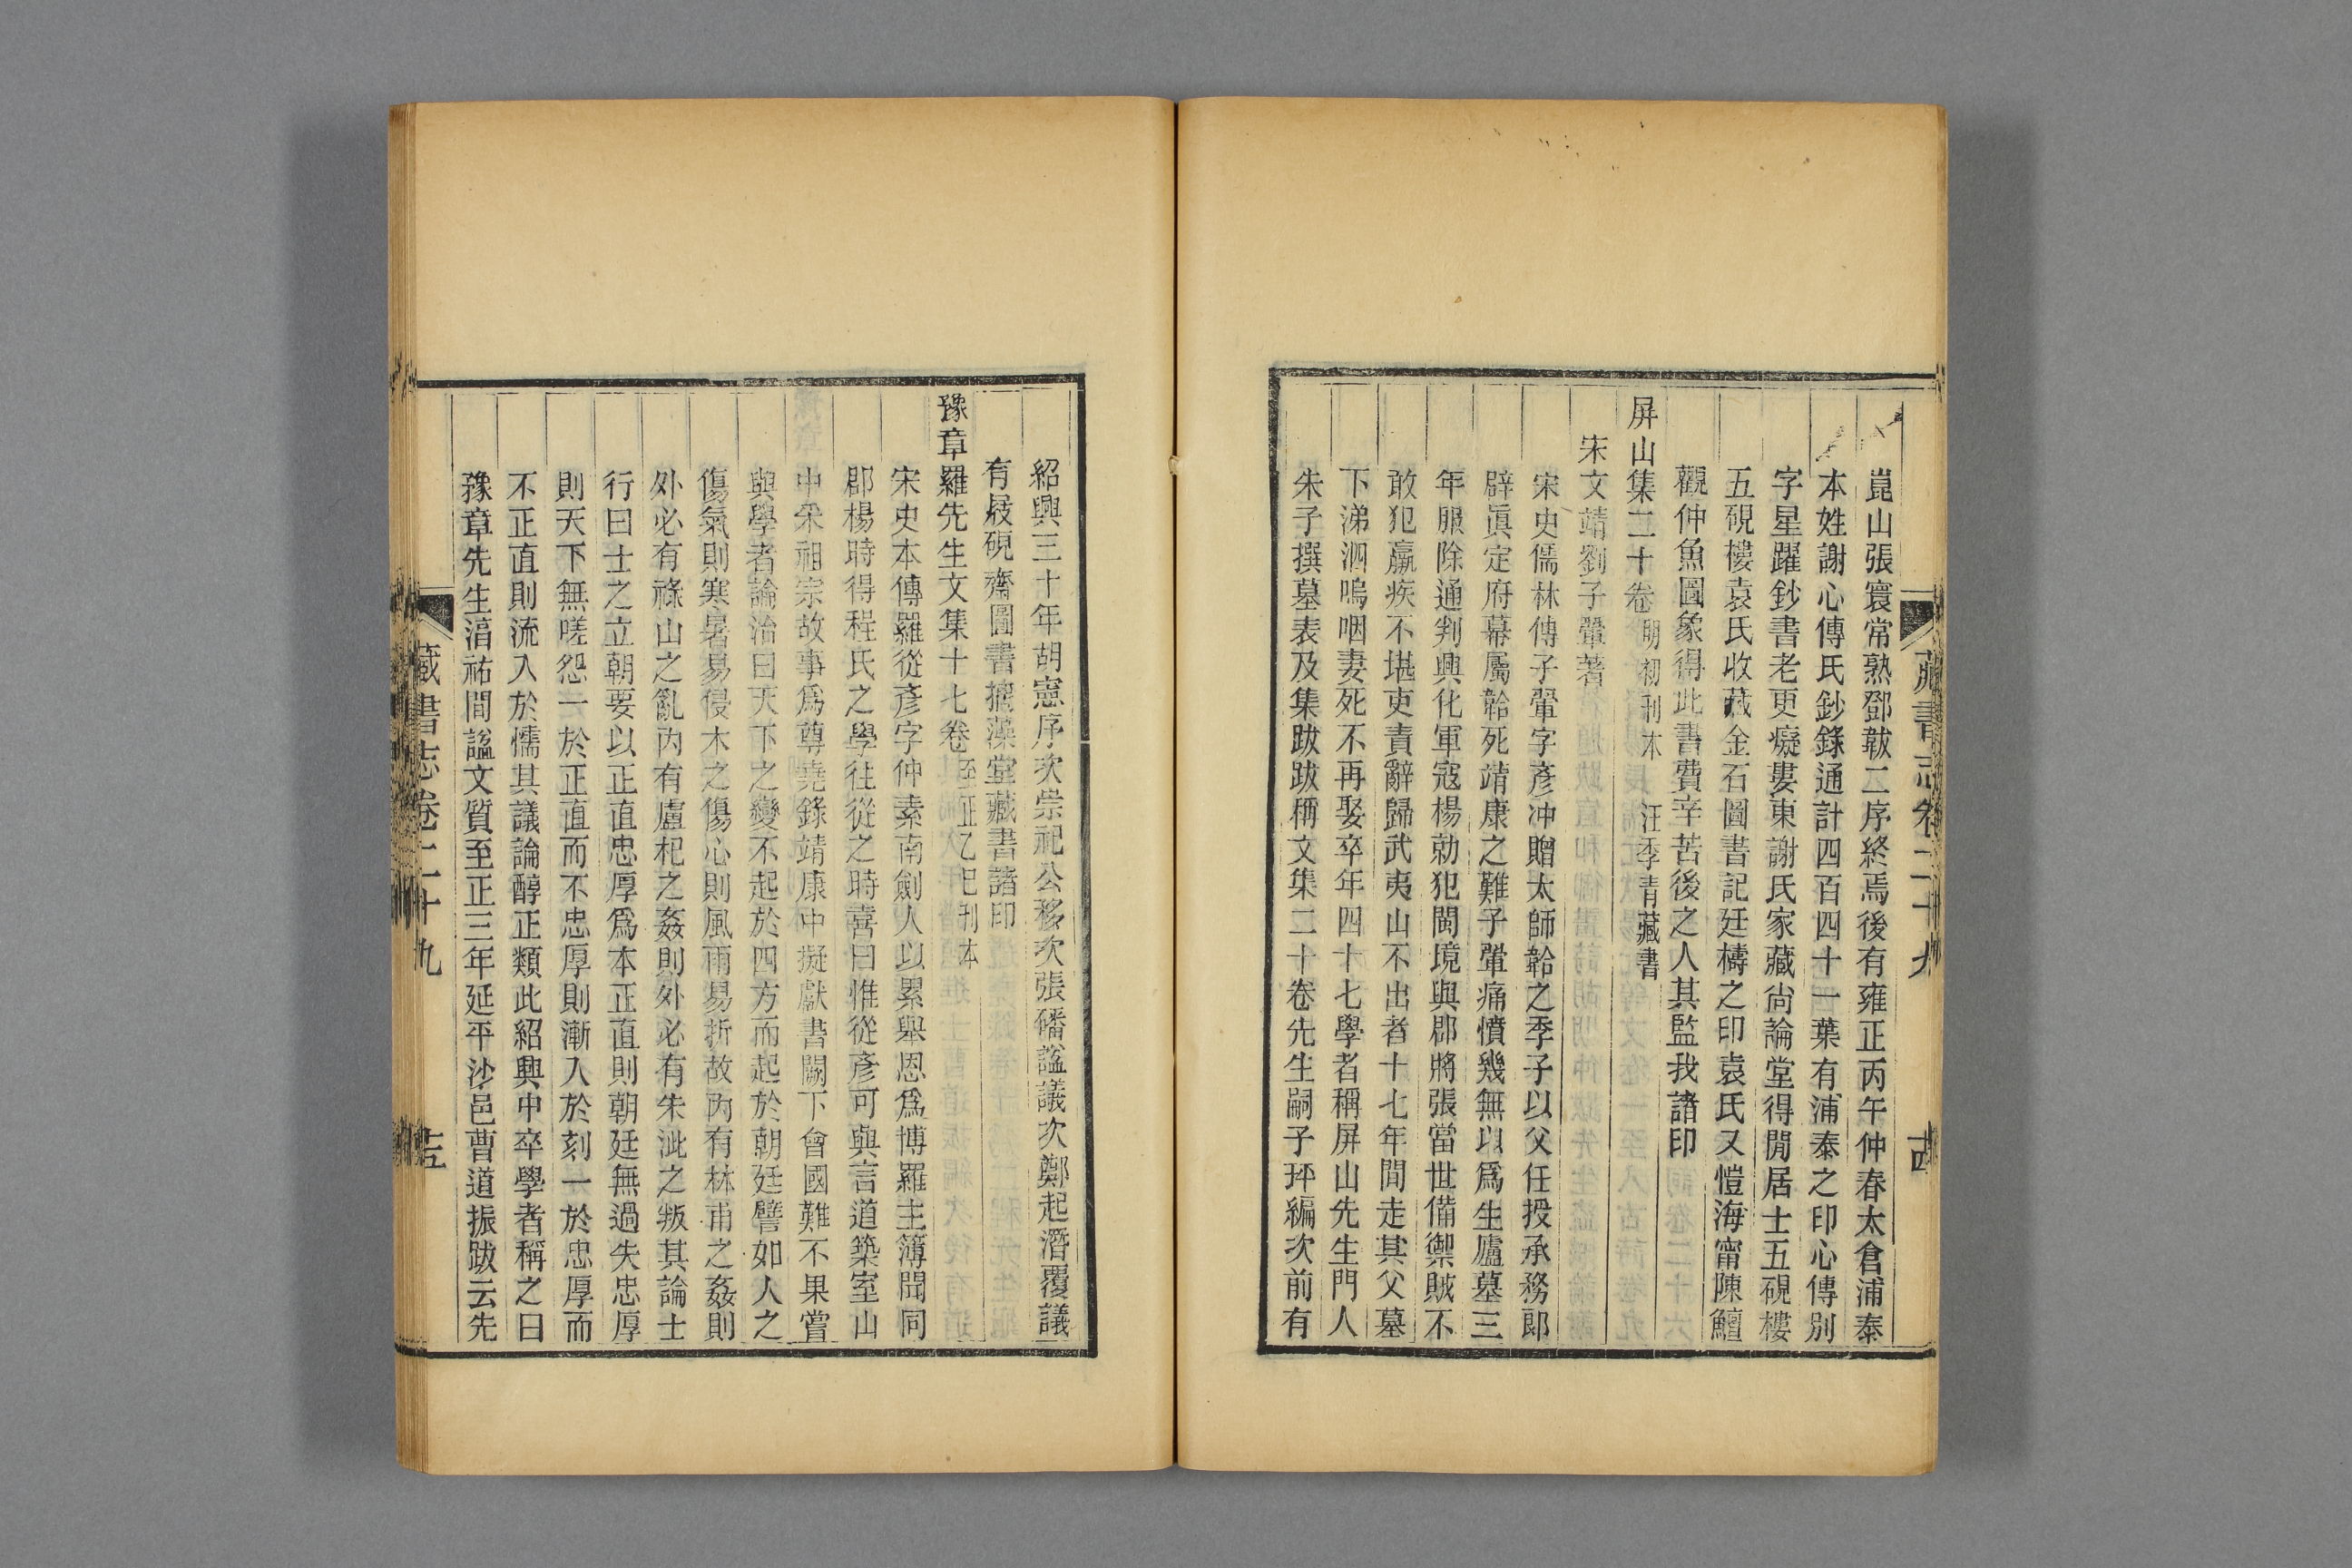 藏書志卷二十九
崑山張寰常熟鄧韍二序終焉後有雍正丙午仲春太倉浦泰
本姓謝心傳氏鈔錄通計四百四十一葉有浦泰之印心傳別
字星躍鈔書老更癡婁東謝氏家藏尙論堂得閒居士五硯樓
五硯樓袁氏收藏金石圖書記廷檮之印袁氏又愷海甯陳鱣
觀仲魚圖象得此書費辛苦後之人其監我諸印
屏山集二十卷 明初刊本 汪季青藏書
宋文靖劉子翬著
宋史儒林傳子翬字彥冲贈太師韐之季子以父任授承務郎
辟眞定府幕屬韐死靖康之難子翬痛憤幾無以爲生廬墓三
年服除通判興化軍寇楊勍犯閩境與郡將張當世備禦賊不
敢犯羸疾不堪吏責辭歸武夷山不出者十七年間走其父墓
下涕泗嗚咽妻死不再娶卒年四十七學者稱屏山先生門人
朱子撰墓表及集跋跋稱文集二十卷先生嗣子玶編次前有
紹興三十年胡憲序次崇祀公移次張磻諡議次鄭起潛覆議
有屐硯齋圖書摛藻堂藏書諸印
豫章羅先生文集十七卷 至正乙巳刊本
宋史本傳羅從彥字仲素南劍人以累舉恩爲博羅主簿聞同
郡楊時得程氏之學往從之時喜曰惟從彥可與言道築室山
中采祖宗故事爲尊堯錄靖康中擬獻書闕下會國難不果嘗
與學者論治曰天下之變不起於四方而起於朝廷譬如人之
傷氣則寒暑易侵木之傷心則風雨易折故內有林甫之姦則
外必有祿山之亂內有盧杞之姦則外必有朱泚之叛其論士
行曰士之立朝要以正直忠厚爲本正直則朝廷無過失忠厚
則天下無嗟怨一於正直而不忠厚則漸入於刻一於忠厚而
不正直則流入於懦其議論醇正類此紹興中卒學者稱之曰
豫章先生淳祐間諡文質至正三年延平沙邑曹道振跋云先
藏書志卷二十九